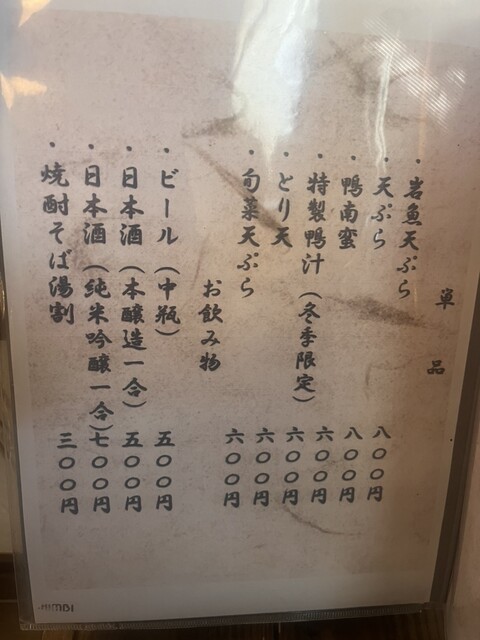 単品
・岩魚天ぷら 八〇〇円
・天ぷら 八〇〇円
・鴨南蛮 六〇〇円
・特製鴨汁（冬季限定） 六〇〇円
・とり天 六〇〇円
・旬菜天ぷら 六〇〇円
お飲み物
・ビール（中瓶） 五〇〇円
・日本酒（本醸造一合） 五〇〇円
・日本酒（純米吟醸一合）七〇〇円
・焼酎そば湯割 三〇〇円